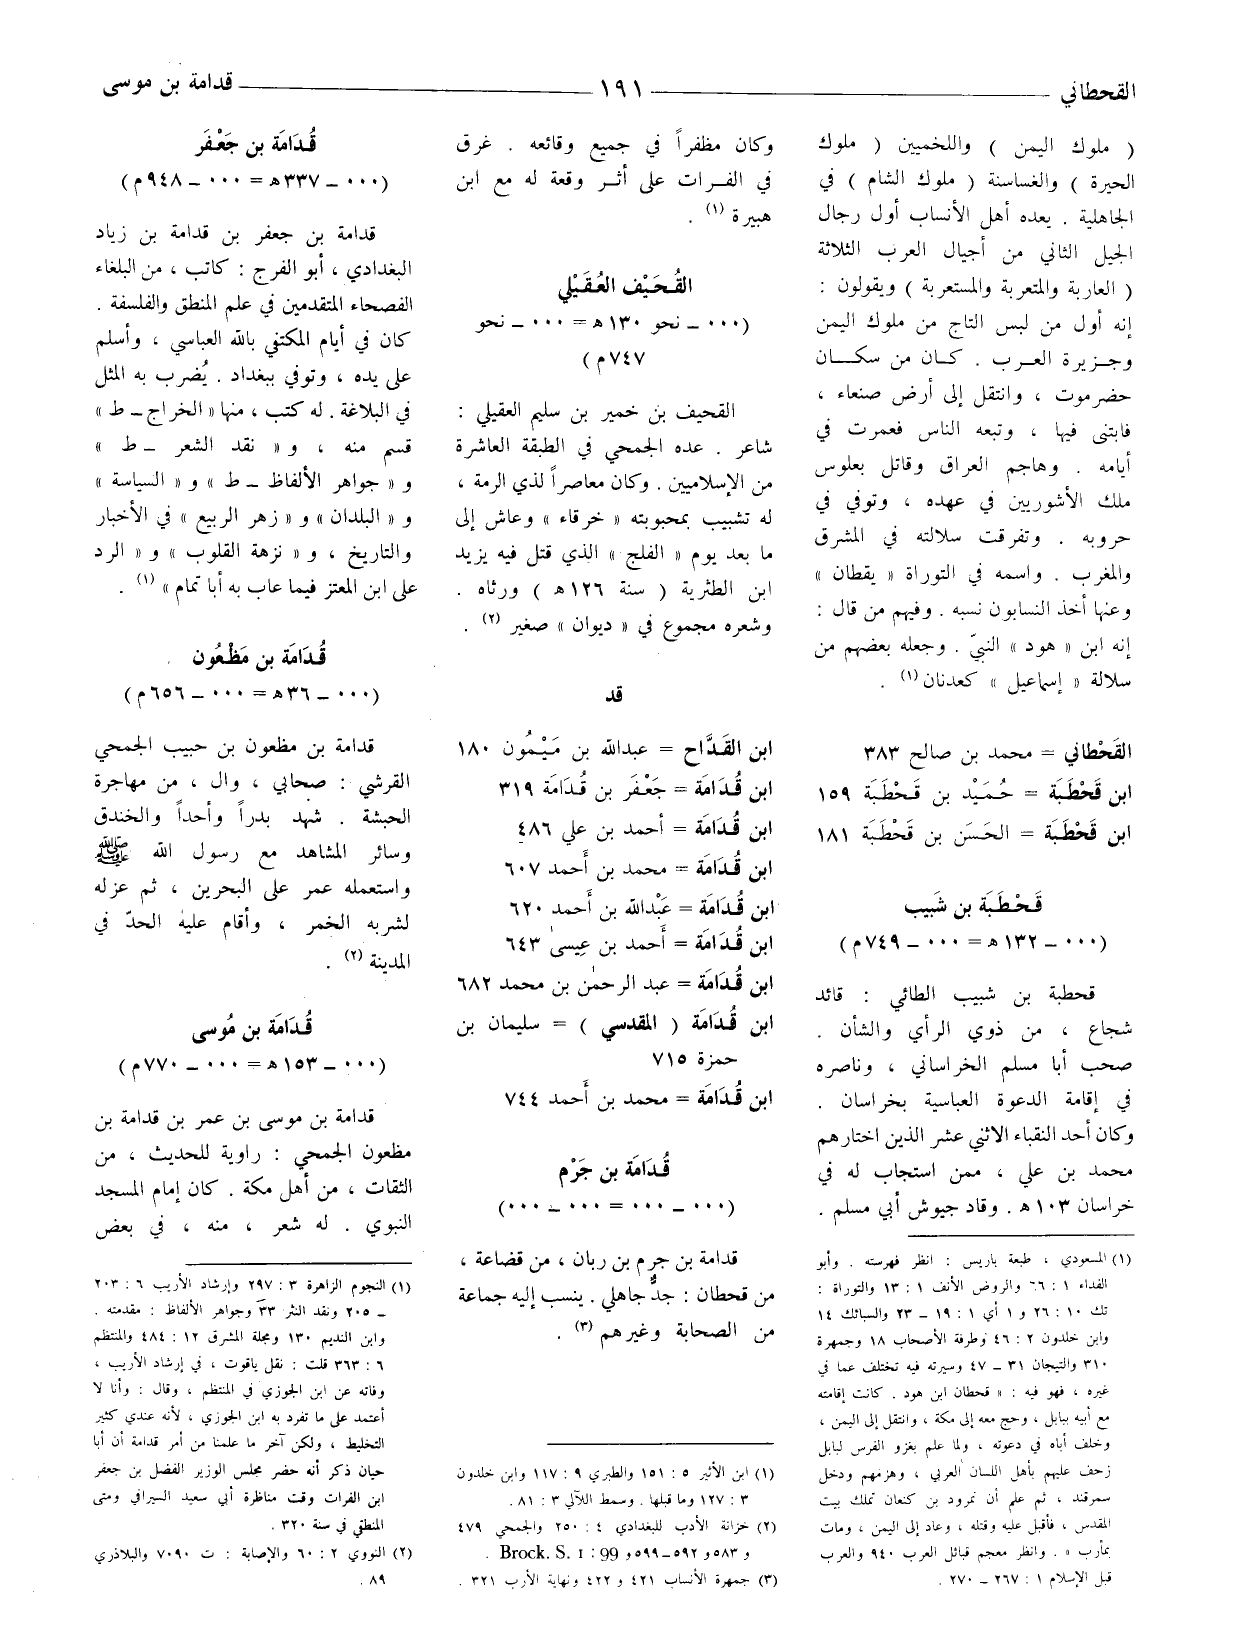 القحطاني
١٩١
قدامة بن موسى
( ملوك اليمن ) واللخميين ( ملوك
الحيرة ) والغساسنة ( ملوك الشام ) في
الجاهلية . يعده أهل الأنساب أول رجال
الجيل الثاني من أجيال العرب الثلاثة
( العاربة والمتعربة والمستعربة ) ويقولون :
إنه أول من لبس التاج من ملوك اليمن
وجزيرة العرب . كان من سكان
حضرموت ، وانتقل إلى أرض صنعاء ،
فابتنى فيها ، وتبعه الناس فعمرت في
أيامه . وهاجم العراق وقاتل بعلوس
ملك الأشوريين في عهده ، وتوفي في
حروبه . وتفرقت سلالته في المشرق
والمغرب . واسمه في التوراة « يقطان »
وعنها أخذ النسابون نسبه . وفيهم من قال :
إنه ابن « هود » النبيّ . وجعله بعضهم من
سلالة « إسماعيل » كعدنان (١) .
القَحْطاني = محمد بن صالح ٣٨٣
ابن قَحْطَبَة = حُمَيْد بن قَحْطَبَة ١٥٩
ابن قَحْطَبَة = الحَسَن بن قَحْطَبَة ١٨١
قَحْطَبَة بن شَبيب
(٠٠٠ ـ ١٣٢ هـ = ٠٠٠ ـ ٧٤٩ م)
قحطبة بن شبيب الطائي : قائد
شجاع ، من ذوي الرأي والشأن .
صحب أبا مسلم الخراساني ، وناصره
في إقامة الدعوة العباسية بخراسان .
وكان أحد النقباء الاثني عشر الذين اختارهم
محمد بن علي ، ممن استجاب له في
خراسان ١٠٣ هـ . وقاد جيوش أبي مسلم .
(١) المسعودي ، طبعة باريس : انظر فهرسته . وأبو
الفداء ١ : ٦٦ والروض الأنف ١ : ١٣ والتوراة :
تك ١٠ : ٢٦ و ١ أي ١ : ١٩ ـ ٢٣ والسبائك ١٤
وابن خلدون ٢ : ٤٦ وطرفة الأصحاب ١٨ وجمهرة
٣١٠ والتيجان ٣١ ـ ٤٧ وسيرته فيه تختلف عما في
غيره ، فهو فيه : « قحطان ابن هود . كانت إقامته
مع أبيه ببابل ، وحج معه إلى مكة ، وانتقل إلى اليمن ،
وخلف أباه في دعوته ، ولما علم بغزو الفرس لبابل
زحف عليهم بأهل اللسان العربي ، وهزمهم ودخل
سمرقند ، ثم علم أن نمرود بن كنعان تملك بيت
المقدس ، فأقبل عليه وقتله ، وعاد إلى اليمن ، ومات
بمأرب » . وانظر معجم قبائل العرب ٩٤٠ والعرب
قبل الإسلام ١ : ٢٦٧ ـ ٢٧٠ .
وكان مظفراً في جميع وقائعه . غرق
في الفرات على أثر وقعة له مع ابن
هبيرة (١) .
القُحَيْف العُقَيْلي
(٠٠٠ ـ نحو ١٣٠ هـ = ٠٠٠ ـ نحو
٧٤٧ م)
القحيف بن خمير بن سليم العقيلي :
شاعر . عده الجمحي في الطبقة العاشرة
من الإسلاميين . وكان معاصراً لذي الرمة ،
له تشبيب بمحبوبته « خرقاء » وعاش إلى
ما بعد يوم « الفلج » الذي قتل فيه يزيد
ابن الطثرية ( سنة ١٢٦ هـ ) ورثاه .
وشعره مجموع في « ديوان » صغير (٢) .
قد
ابن القَدَّاح = عبدالله بن مَيْمُون ١٨٠
ابن قُدَامَة = جَعْفَر بن قُدَامَة ٣١٩
ابن قُدَامَة = أحمد بن علي ٤٨٦
ابن قُدَامَة = محمد بن أَحمد ٦٠٧
ابن قُدَامَة = عَبْدالله بن أَحمد ٦٢٠
ابن قُدَامَة = أَحمد بن عِيسىٰ ٦٤٣
ابن قُدَامَة = عبد الرحمٰن بن محمد ٦٨٢
ابن قُدَامَة ( المقدسي ) = سليمان بن
حمزة ٧١٥
ابن قُدَامَة = محمد بن أَحمد ٧٤٤
قُدَامَة بن جَرْم
(٠٠٠ ـ ٠٠٠ = ٠٠٠ ـ ٠٠٠)
قدامة بن جرم بن ربان ، من قضاعة ،
من قحطان : جدٌّ جاهلي . ينسب إليه جماعة
من الصحابة وغيرهم (٣) .
(١) ابن الأثير ٥ : ١٥١ والطبري ٩ : ١١٧ وابن خلدون
٣ : ١٢٧ وما قبلها . وسمط اللآلي ٣ : ٨١ .
(٢) خزانة الأدب للبغدادي ٤ : ٢٥٠ والجمحي ٤٧٩
و ٥٨٣ و ٥٩٢ـ٥٩٩ و Brock. S. 1 : 99 .
(٣) جمهرة الأنساب ٤٢١ و ٤٢٢ ونهاية الأرب ٣٢١ .
قُدَامَة بن جَعْفَر
(٠٠٠ ـ ٣٣٧ هـ = ٠٠٠ ـ ٩٤٨ م)
قدامة بن جعفر بن قدامة بن زياد
البغدادي ، أبو الفرج : كاتب ، من البلغاء
الفصحاء المتقدمين في علم المنطق والفلسفة .
كان في أيام المكتفي بالله العباسي ، وأسلم
على يده ، وتوفي ببغداد . يُضرب به المثل
في البلاغة . له كتب ، منها « الخراج ـ ط »
قسم منه ، و « نقد الشعر ـ ط »
و « جواهر الألفاظ ـ ط » و « السياسة »
و « البلدان » و « زهر الربيع » في الأخبار
والتاريخ ، و « نزهة القلوب » و « الرد
على ابن المعتز فيما عاب به أبا تمام » (١) .
قُدَامَة بن مَظْعُون
(٠٠٠ ـ ٣٦ هـ = ٠٠٠ ـ ٦٥٦ م)
قدامة بن مظعون بن حبيب الجمحي
القرشي : صحابي ، وال ، من مهاجرة
الحبشة . شهد بدراً وأحداً والخندق
وسائر المشاهد مع رسول الله ﷺ
واستعمله عمر على البحرين ، ثم عزله
لشربه الخمر ، وأقام عليه الحدّ في
المدينة (٢) .
قُدَامَة بن مُوسى
(٠٠٠ ـ ١٥٣ هـ = ٠٠٠ ـ ٧٧٠ م)
قدامة بن موسى بن عمر بن قدامة بن
مظعون الجمحي : راوية للحديث ، من
الثقات ، من أهل مكة . كان إمام المسجد
النبوي . له شعر ، منه ، في بعض
(١) النجوم الزاهرة ٣ : ٢٩٧ وإرشاد الأريب ٦ : ٢٠٣
ـ ٢٠٥ ونقد النثر ٣٣ وجواهر الألفاظ : مقدمته .
وابن النديم ١٣٠ ومجلة المشرق ١٢ : ٤٨٤ والمنتظم
٦ : ٣٦٣ قلت : نقل ياقوت ، في إرشاد الأريب ،
وفاته عن ابن الجوزي في المنتظم ، وقال : وأنا لا
أعتمد على ما تفرد به ابن الجوزي ، لأنه عندي كثير
التخليط ، ولكن آخر ما علمنا من أمر قدامة أن أبا
حيان ذكر أنه حضر مجلس الوزير الفضل بن جعفر
ابن الفرات وقت مناظرة أبي سعيد السيرافي ومتى
المنطقي في سنة ٣٢٠ .
(٢) النووي ٢ : ٦٠ والإصابة : ت ٧٠٩٠ والبلاذري
٨٩ .